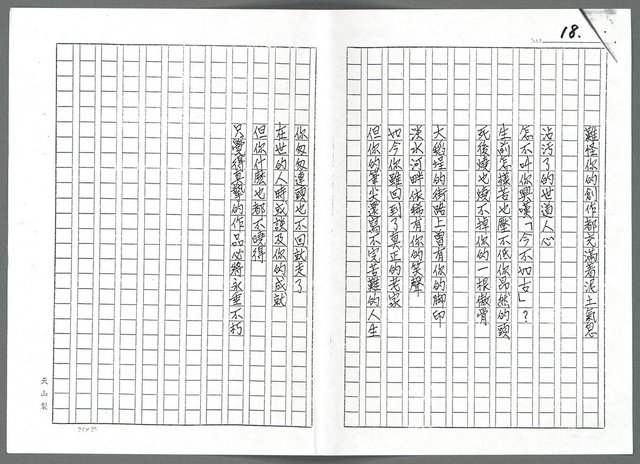 18.
NO.
難怪你的創作都充滿著泥土氣息
沾污了的世道人心
怎不叫你興嘆「今不如古」？
生前怎樣苦也壓不低你昂然的頭
死後燒也燒不掉你的一根傲骨
大稻埕的街路上曾有你的腳印
淡水河畔依稀有你的笑聲
如今你雖回到了真正的老家
但你的筆尖還寫不完苦難的人生
你匆匆連頭也不回就走了
在世的人時或談及你的成就
但你什麼也都不曉得
只覺得真摯的作品必將永垂不朽
天山製
25×25